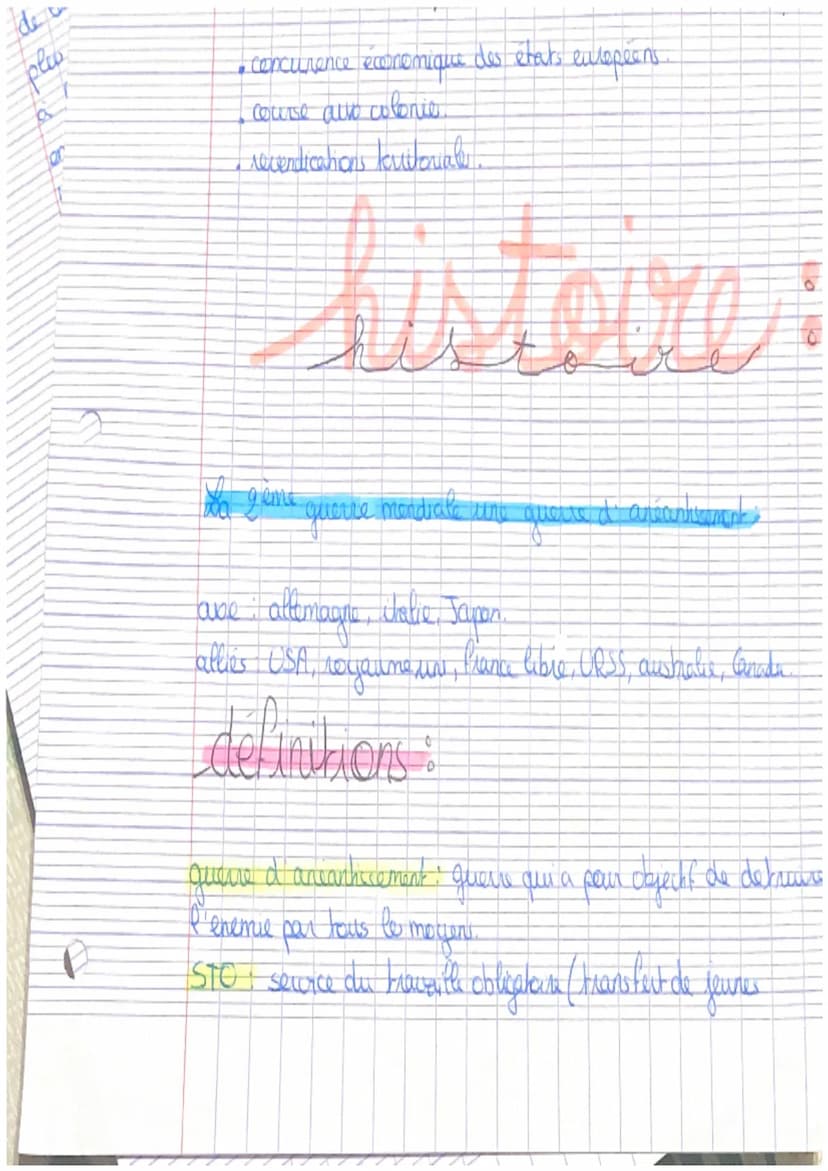 de
plus
à
. concurence économique des états européens.
. course aux colonie.
. revendications territoriale.
histoire :
histoire
La 2ème guerre mondiale une guerre d'anéantissement
axe : allemagne, italie, Japon.
alliés : USA, royaume uni, france libre, URSS, australie, Canada.
définitions :
guerre d'anéantissement : guerre qui a pour objectif de detruire
l'enemie par touts les moyens.
STO : service du travaille obligatoire (transfert de jeunes